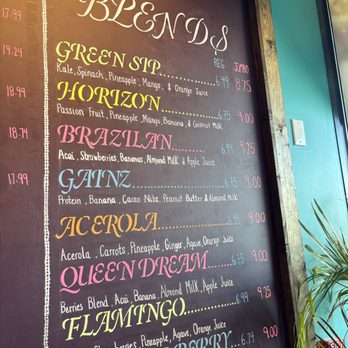 17.99
19.24
18.99
18.74
17.99
BLENDS
REG JUMBO
GREEN SIP 6.49 8.75
Kale, Spinach, Pineapple, Mango, & Orange Juice
HORIZON 6.75 9.00
Passion Fruit, Pineapple, Mango, Banana, & Coconut Milk
BRAZILAN 6.99 9.25
Acai, Strawberries, Bananas, Almond Milk & Apple Juice
GAINZ 6.75 9.00
Protein, Banana, Cacao Nibs, Peanut Butter & Almond Milk
ACEROLA 6.75 9.00
Acerola, Carrots, Pineapple, Ginger, Agave, Orange Juice
QUEEN DREAM 6.75 9.00
Berries Blend, Acai, Banana, Almond Milk, Apple Juice
FLAMINGO 6.99 9.25
Strawberries, Pineapple, Agave, Orange Juice
BERRY 9.00